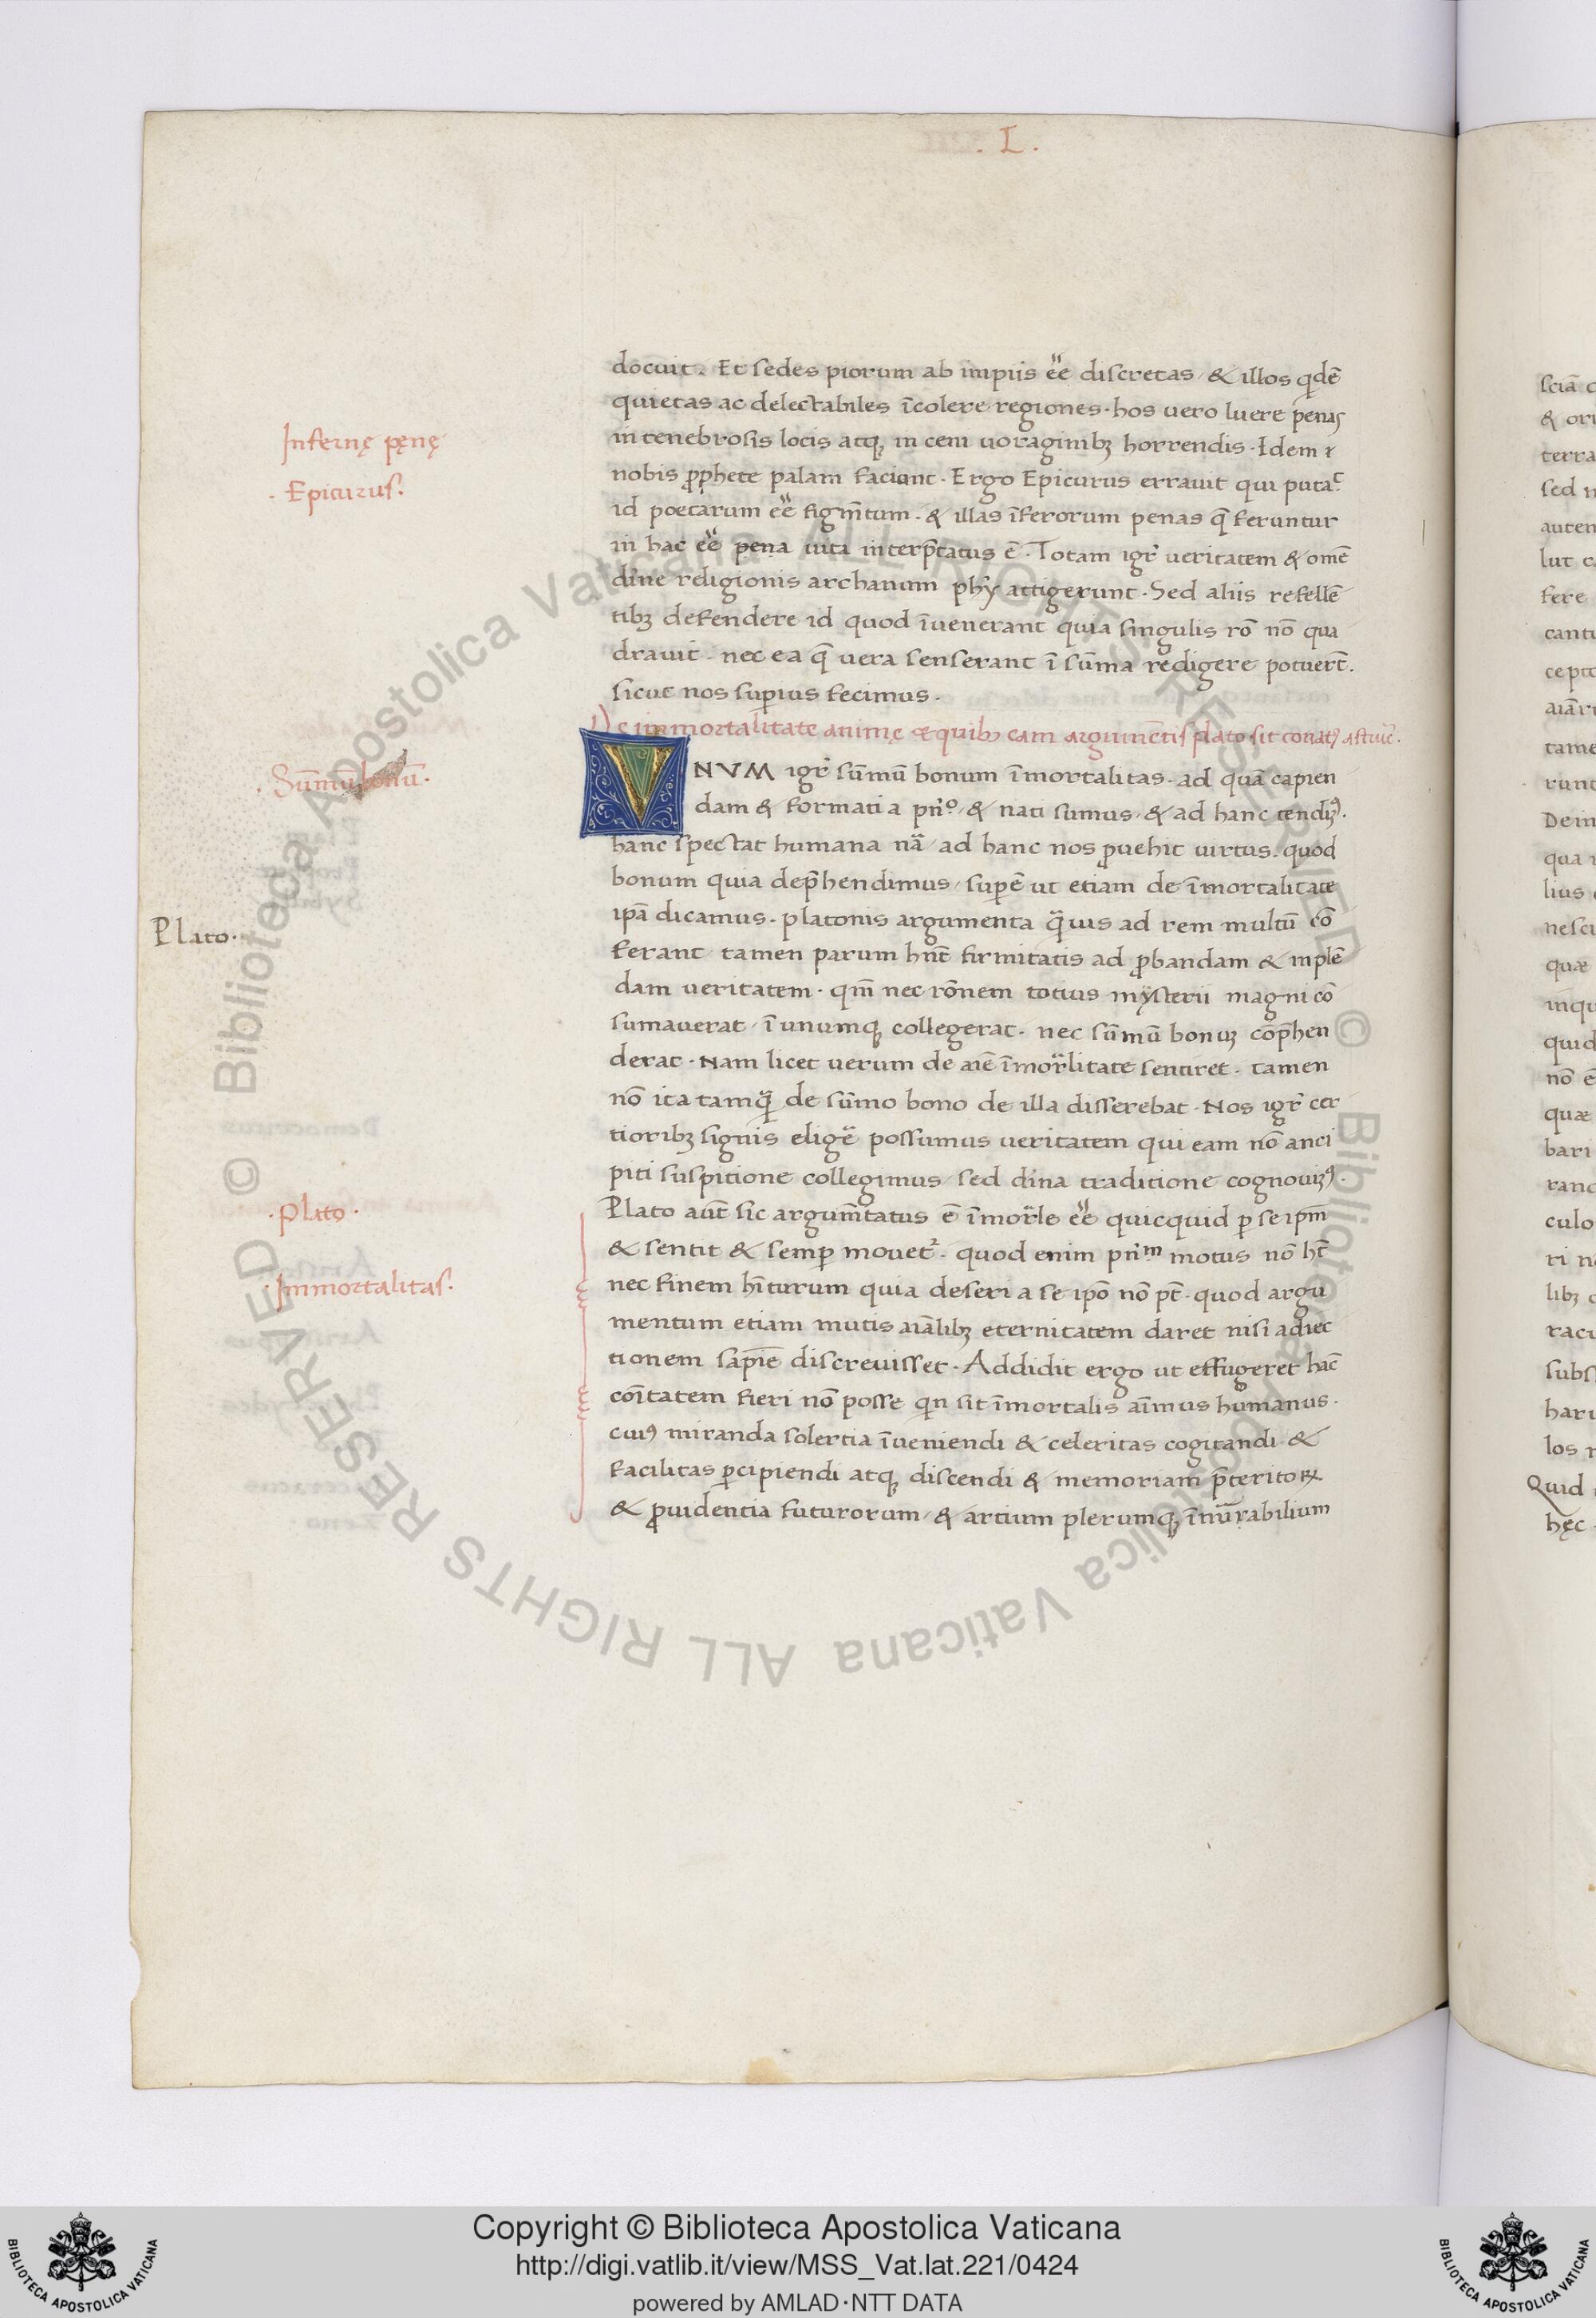 . L .
docuit. Et sedes piorum ab impiis eē discretas / & illos qdē
quietas ac delectabiles īcolere regiones · hos uero luere penas
Infernę pęnę
in tenebrosis locis atq; in ceni uoraginibȝ horrendis · Idem &
· Epicurus.
nobis ꝓphete palam faciunt · Ergo Epicurus errauit qui putat
id poetarum eē figm̄tum · & illas īferorum penas q̄ feruntur
in hac eē pena uita interp̄tatus ē · Totam igr̄ ueritatem & omē
diīne religionis archanum phȳ attigerunt · Sed aliis refellē
tibȝ defendere id quod īuenerant quia singulis rō nō qua
drauit · nec ea q̄ uera senserant ī sūma redigere potuert̄.
sicut nos suꝑius fecimus ·
De immortalitate animę & quibȝ eam argumētis plato sit conatꝰ astruē.
· Sūmū bonū ·
VNVM igr̄ sūmū bonum īmortalitas · ad quā capien
dam & formati a pn̄º / & nati sumus / & ad hanc tendiȝꝰ.
hanc spectat humana nā / ad hanc nos ꝓuehit uirtus · quod
bonum quia dep̄hendimus / suꝑē ut etiam de īmortalitate
Plato ·
ipā dicamus · platonis argumenta q̄uis ad rem multū cō
ferant / tamen parum hn̄t firmitatis ad ꝓbandam & inplē
dam ueritatem · qm̄ nec rōnem totius mysterii magni cō
sumauerat / ī unumq; collegerat · nec sūmū bonuȝ cōp̄hen
derat · Nam licet uerum de aīe īmor̄litate sentiret · tamen
nō ita tamq̄ de sūmo bono de illa disserebat · Nos igr̄ cer
tioribȝ signis eligē possumus ueritatem qui eam nō anci
piti suspitione collegimus / sed diīna traditione cognouiȝꝰ.
· Plato ·
Plato aūt sic argum̄tatus ē īmor̄le eē quicquid ꝑ se ipm̄
& sentit & semꝑ mouet² · quod enim pn̄m motus nō ht̄
· Immortalitas.
nec finem hīturum quia deseri a se ipō nō pt̄ · quod argu
mentum etiam mutis aiālibȝ eternitatem daret nisi adiec
tionem sapiē discreuisset · Addidit ergo ut effugeret hāc
coītatem fieri nō posse qn sit īmortalis aīmus humanus ·
cuiꝰ miranda solertia īueniendi & celeritas cogitandi · &
facilitas ꝑcipiendi atq; discendi & memoriam p̄teritoꝝ
& ꝓuidentia futurorum / & artium plerumq; īnūrabilium
© Biblioteca Apostolica Vaticana ALL RIGHTS RESERVED
© Biblioteca Apostolica Vaticana ALL RIGHTS RESERVED
Copyright © Biblioteca Apostolica Vaticana
http://digi.vatlib.it/view/MSS_Vat.lat.221/0424
powered by AMLAD·NTT DATA
BIBLIOTECA APOSTOLICA VATICANA
BIBLIOTECA APOSTOLICA VATICANA